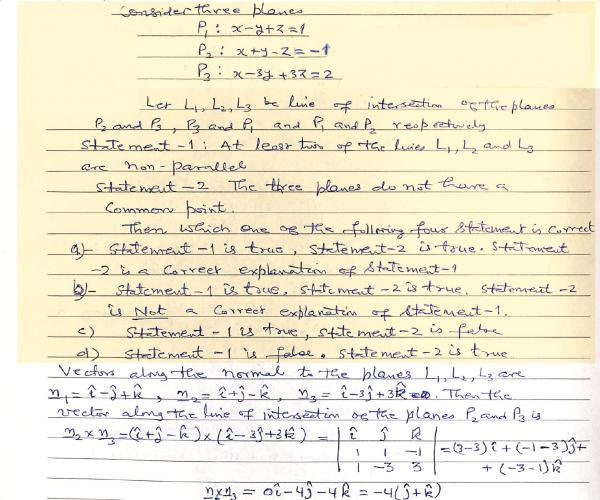 Consider three planes
P₁ : x-y+z=1
P₂ : x+y-z=-1
P₃ : x-3y+3z=2
Let L₁, L₂, L₃ be line of intersection of the planes
P₂ and P₃, P₃ and P₁ and P₁ and P₂ respectively
Statement-1: At least two of the lines L₁, L₂ and L₃
are non-parallel
Statement-2 The three planes do not have a
common point.
Then which one of the following four statement is correct
a)- Statement-1 is true, Statement-2 is true. Statement
-2 is a correct explanation of Statement-1
b)- Statement-1 is true, Statement-2 is true. Statement-2
is Not a correct explanation of Statement-1.
c) Statement-1 is true, Statement-2 is false
d) Statement-1 is false. Statement-2 is true
Vectors along the normal to the planes L₁, L₂, L₃ are
n₁= î-ĵ+k̂, n₂=î+ĵ-k̂, n₃= î-3ĵ+3k̂ . Then the
vector along the line of intersection of the planes P₂ and P₃ is
n₂×n₃=(î+ĵ-k̂)×(î-3ĵ+3k̂) = | î ĵ k̂ | =(3-3)î+(-1-3)ĵ+
1 1 -1
1 -3 3 + (-3-1)k̂
n₂×n₃= 0î-4ĵ-4k̂ = -4(ĵ+k̂)